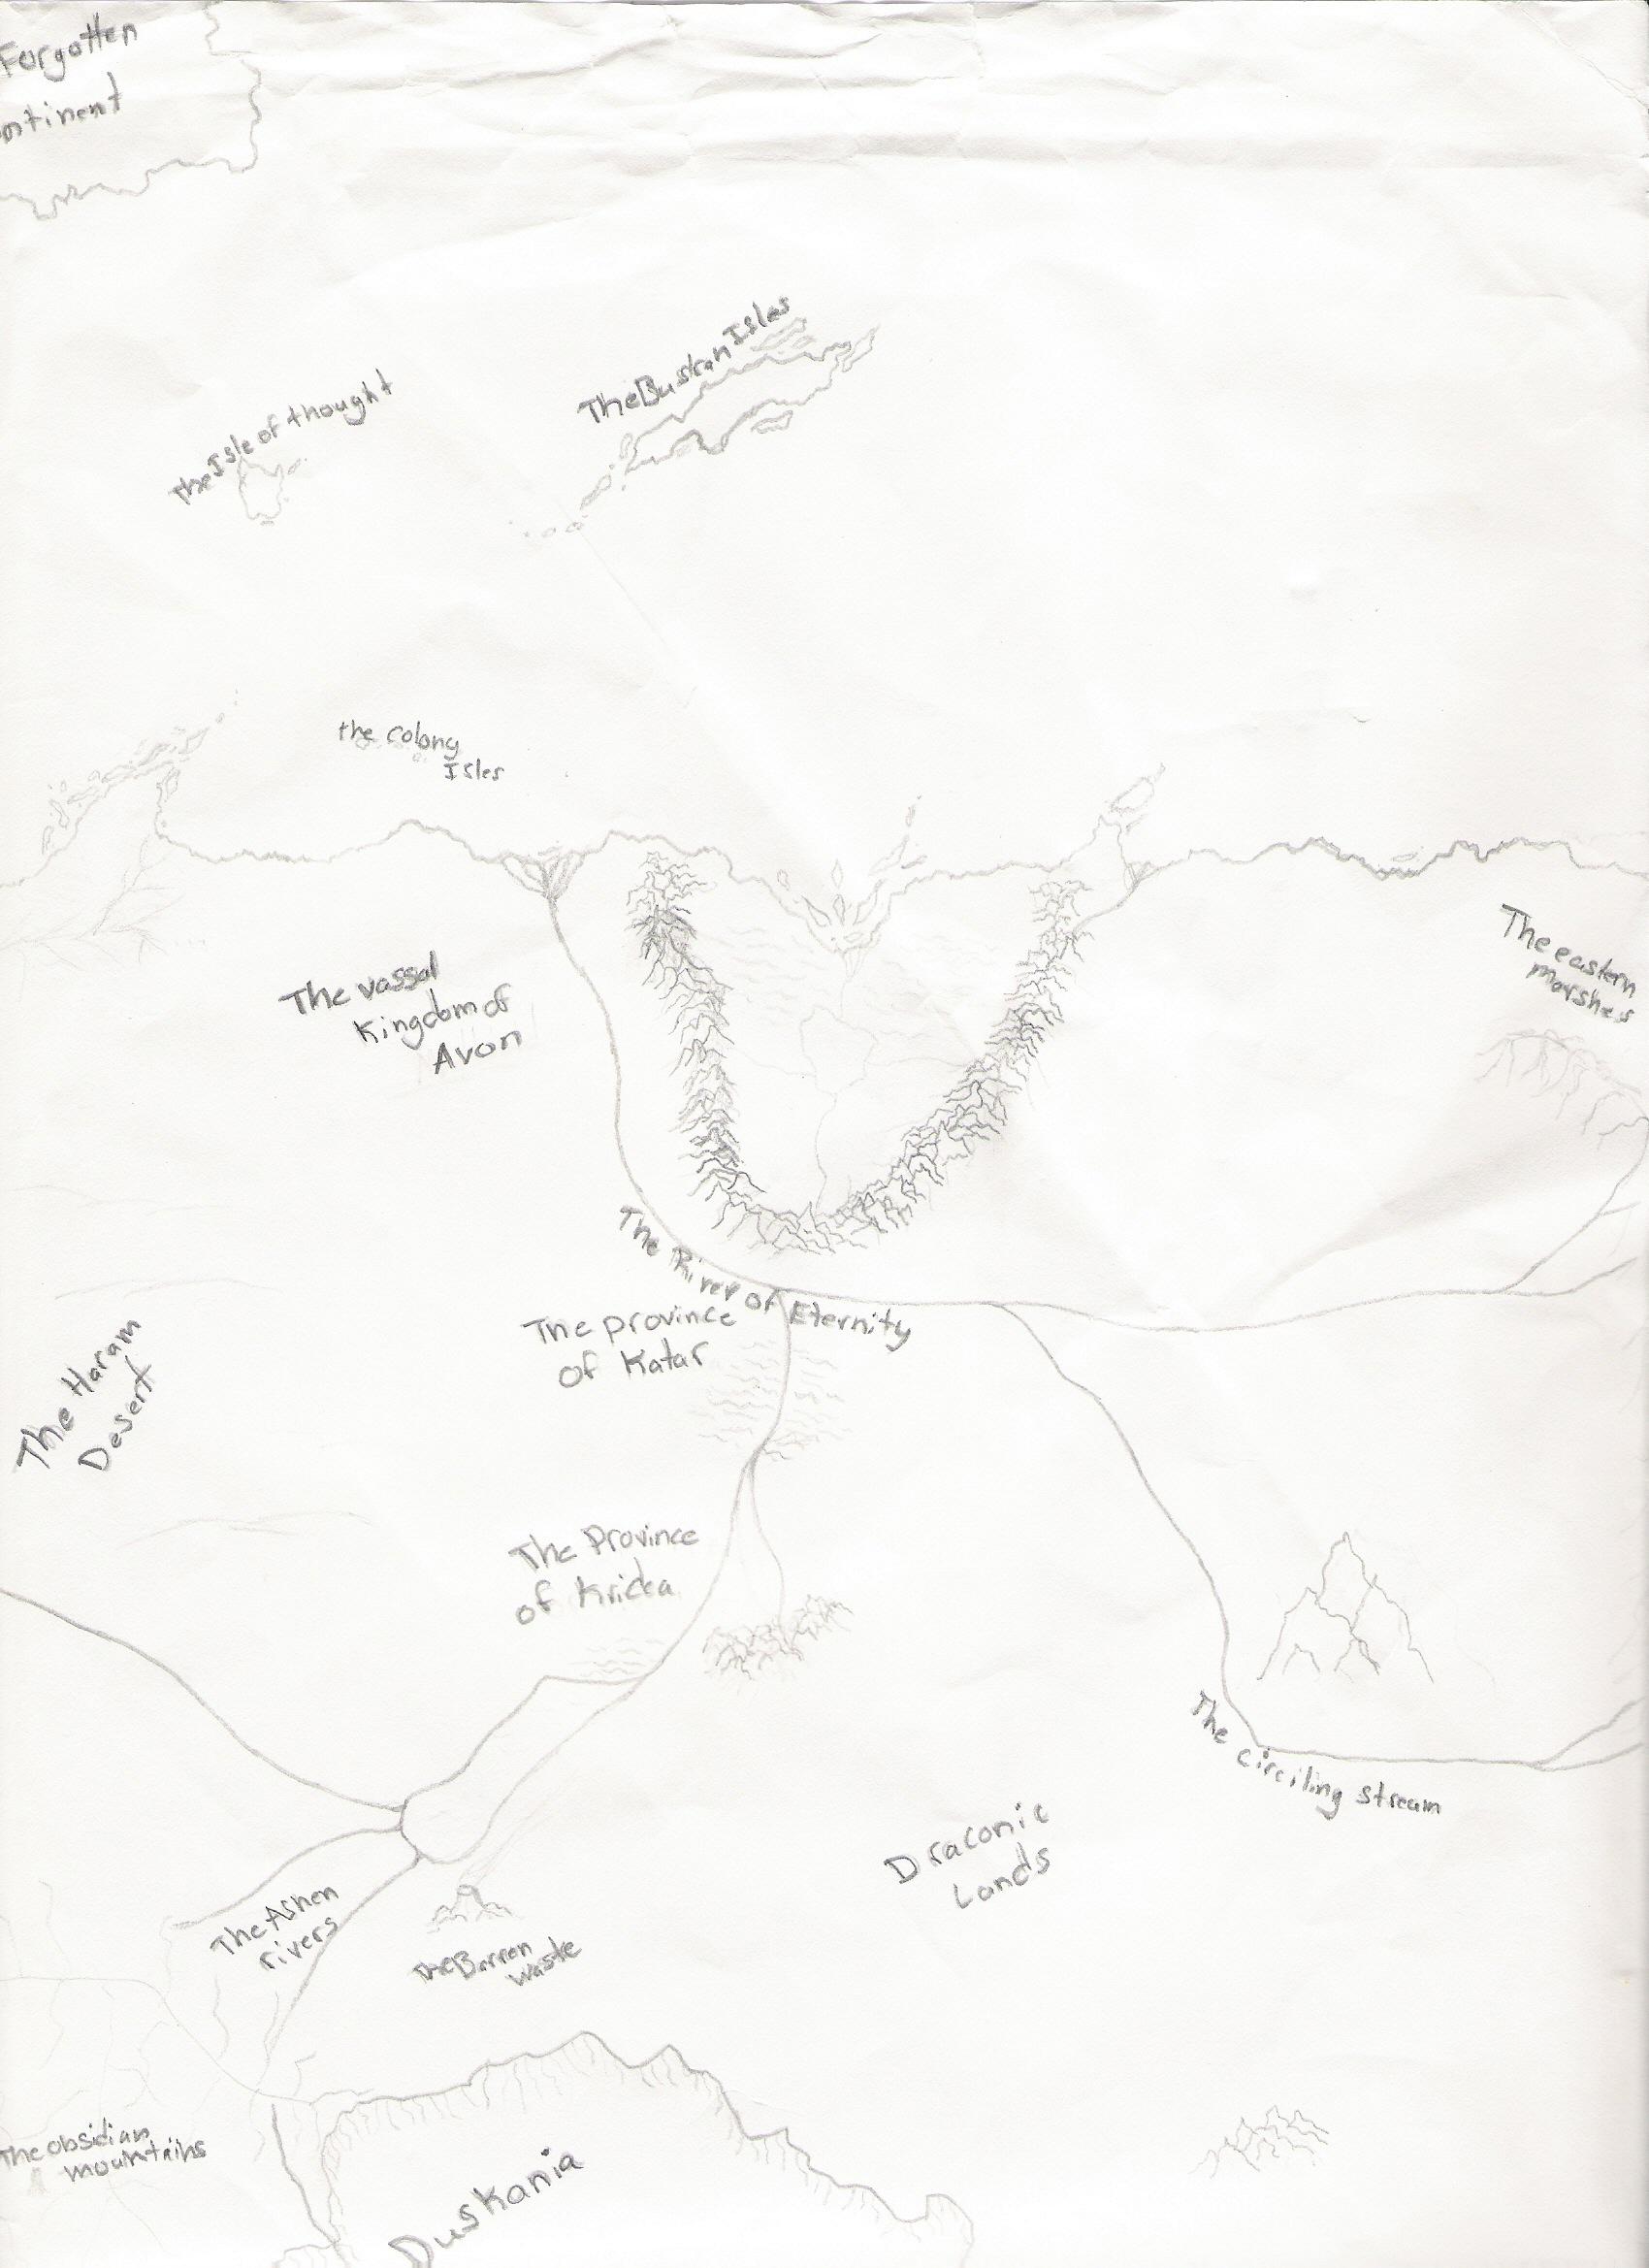 Forgotten
ntinent
The Buskan Isles
the Isle of thought
the colony
Isles
The eastern
marshes
The vassal
Kingdom of
Avon
The River of Eternity
The province
of Katar
The Haram
Desert
The Province
of Kridea
The circiling stream
Draconic
Lands
The Ashen
rivers
the Barren
waste
The obsidian
mountains
Duskania